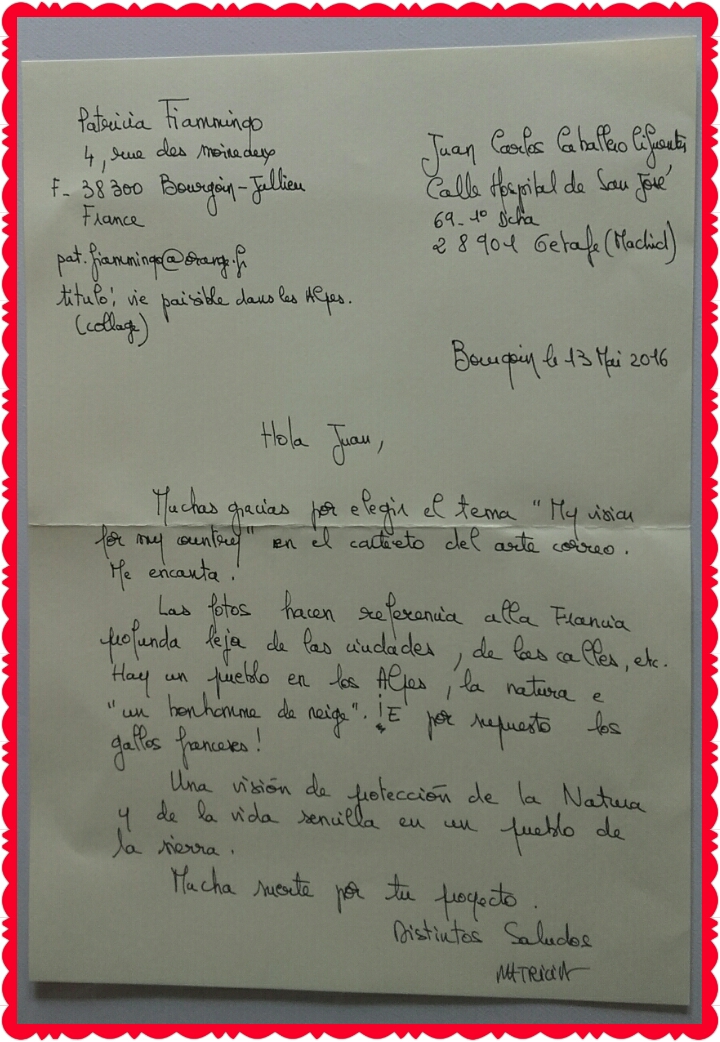 Patricia Fiammingo
4, rue des moineaux
F- 38300 Bourgoin-Jallieu
France
pat.fiammingo@orange.fr
titulo: vie paisible dans les Alpes.
(collage)
Juan Carlos Caballero Cifuentes
Calle Hospital de San José
69-1º Dcha
28901 Getafe (Madrid)
Bourgoin le 13 Mai 2016
Hola Juan,
Muchas gracias por elegir el tema "My vision
for my country" en el contexto del arte correo.
Me encanta.
Las fotos hacen referencia alla Francia
profunda leja de las ciudades, de las calles, etc.
Hay un pueblo en los Alpes, la natura e
"un bonhomme de neige". ¡E por supuesto los
gallos franceses!
Una visión de protección de la Natura
y de la vida sencilla en un pueblo de
la sierra.
Mucha suerte por tu proyecto.
Distintos Saludos
PATRICIA